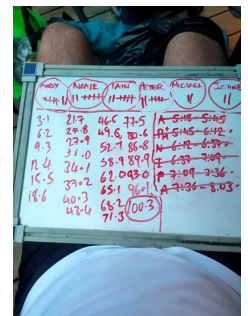 ANDY NATALIE IAIN PETER MICHAEL JUSTINE
3.1 21.7 46.5 77.5 A 5:15-5:45
6.2 24.8 49.6 80.6 5:45-6:12
9.3 27.9 52.7 86.8 N 6:12-6:37
12.4 31.0 58.9 89.9 I 6:37-7:09
15.5 34.1 62.0 93.0 P 7:09-7:36
18.6 37.2 65.1 96.1 A 7:36-8:03
40.3 68.2 100.3
43.4 71.3